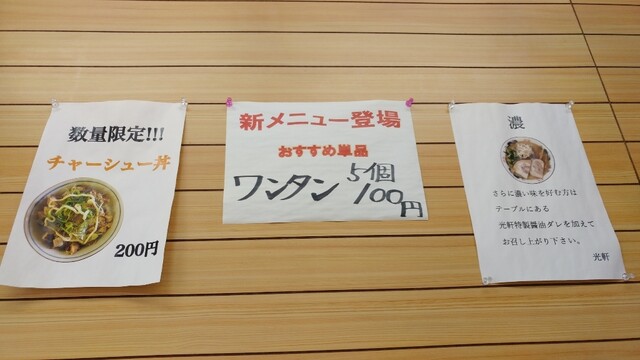 数量限定!!!
チャーシュー丼
200円
新メニュー登場
おすすめ単品
ワンタン 5個
100円
濃
さらに濃い味を好む方は
テーブルにある
光軒特製醤油ダレを加えて
お召し上がり下さい。
光軒